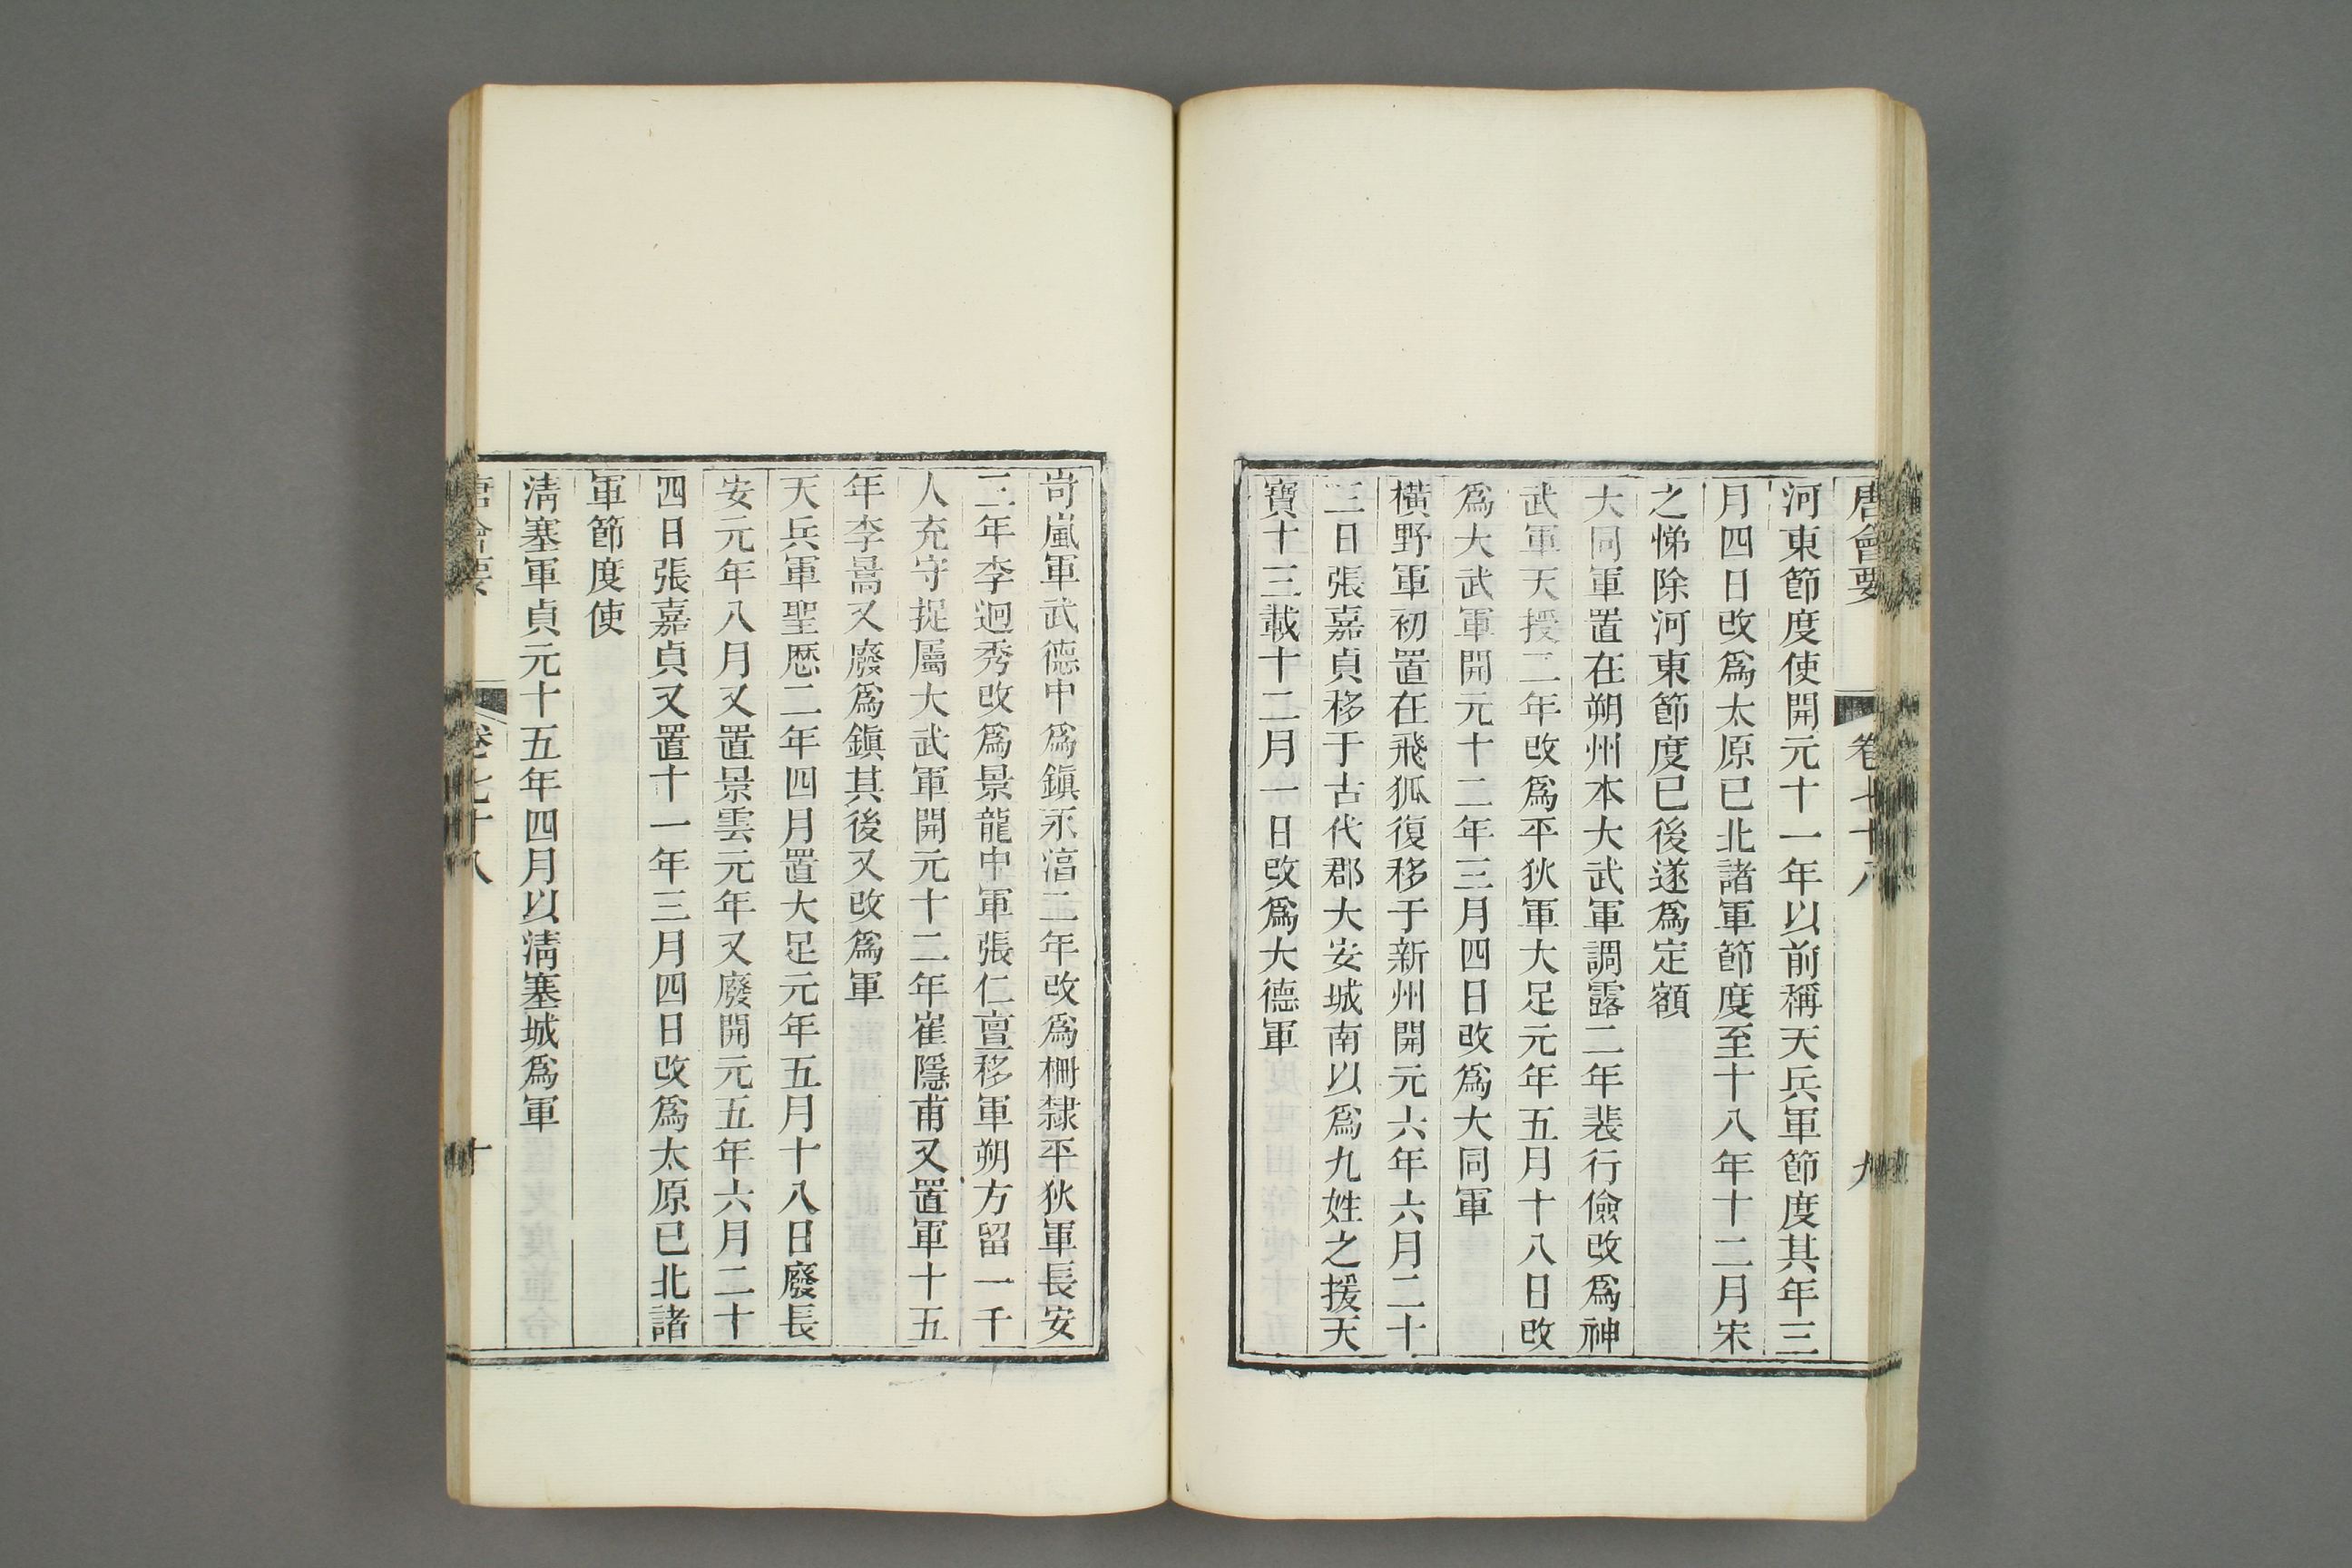 唐會要 卷七十八 九
河東節度使開元十一年以前稱天兵軍節度其年三
月四日改爲太原已北諸軍節度至十八年十二月宋
之悌除河東節度已後遂爲定額
大同軍置在朔州本大武軍調露二年裴行儉改爲神
武軍天授二年改爲平狄軍大足元年五月十八日改
爲大武軍開元十二年三月四日改爲大同軍
橫野軍初置在飛狐復移于新州開元六年六月二十
三日張嘉貞移于古代郡大安城南以爲九姓之援天
寶十三載十二月一日改爲大德軍
岢嵐軍武德中爲鎭永湻二年改爲柵隸平狄軍長安
三年李迥秀改爲景龍中軍張仁亶移軍朔方留一千
人充守捉屬大武軍開元十二年崔隱甫又置軍十五
年李暠又廢爲鎭其後又改爲軍
天兵軍聖厯二年四月置大足元年五月十八日廢長
安元年八月又置景雲元年又廢開元五年六月二十
四日張嘉貞又置十一年三月四日改爲太原已北諸
軍節度使
淸塞軍貞元十五年四月以淸塞城爲軍
唐會要 卷七十八 十